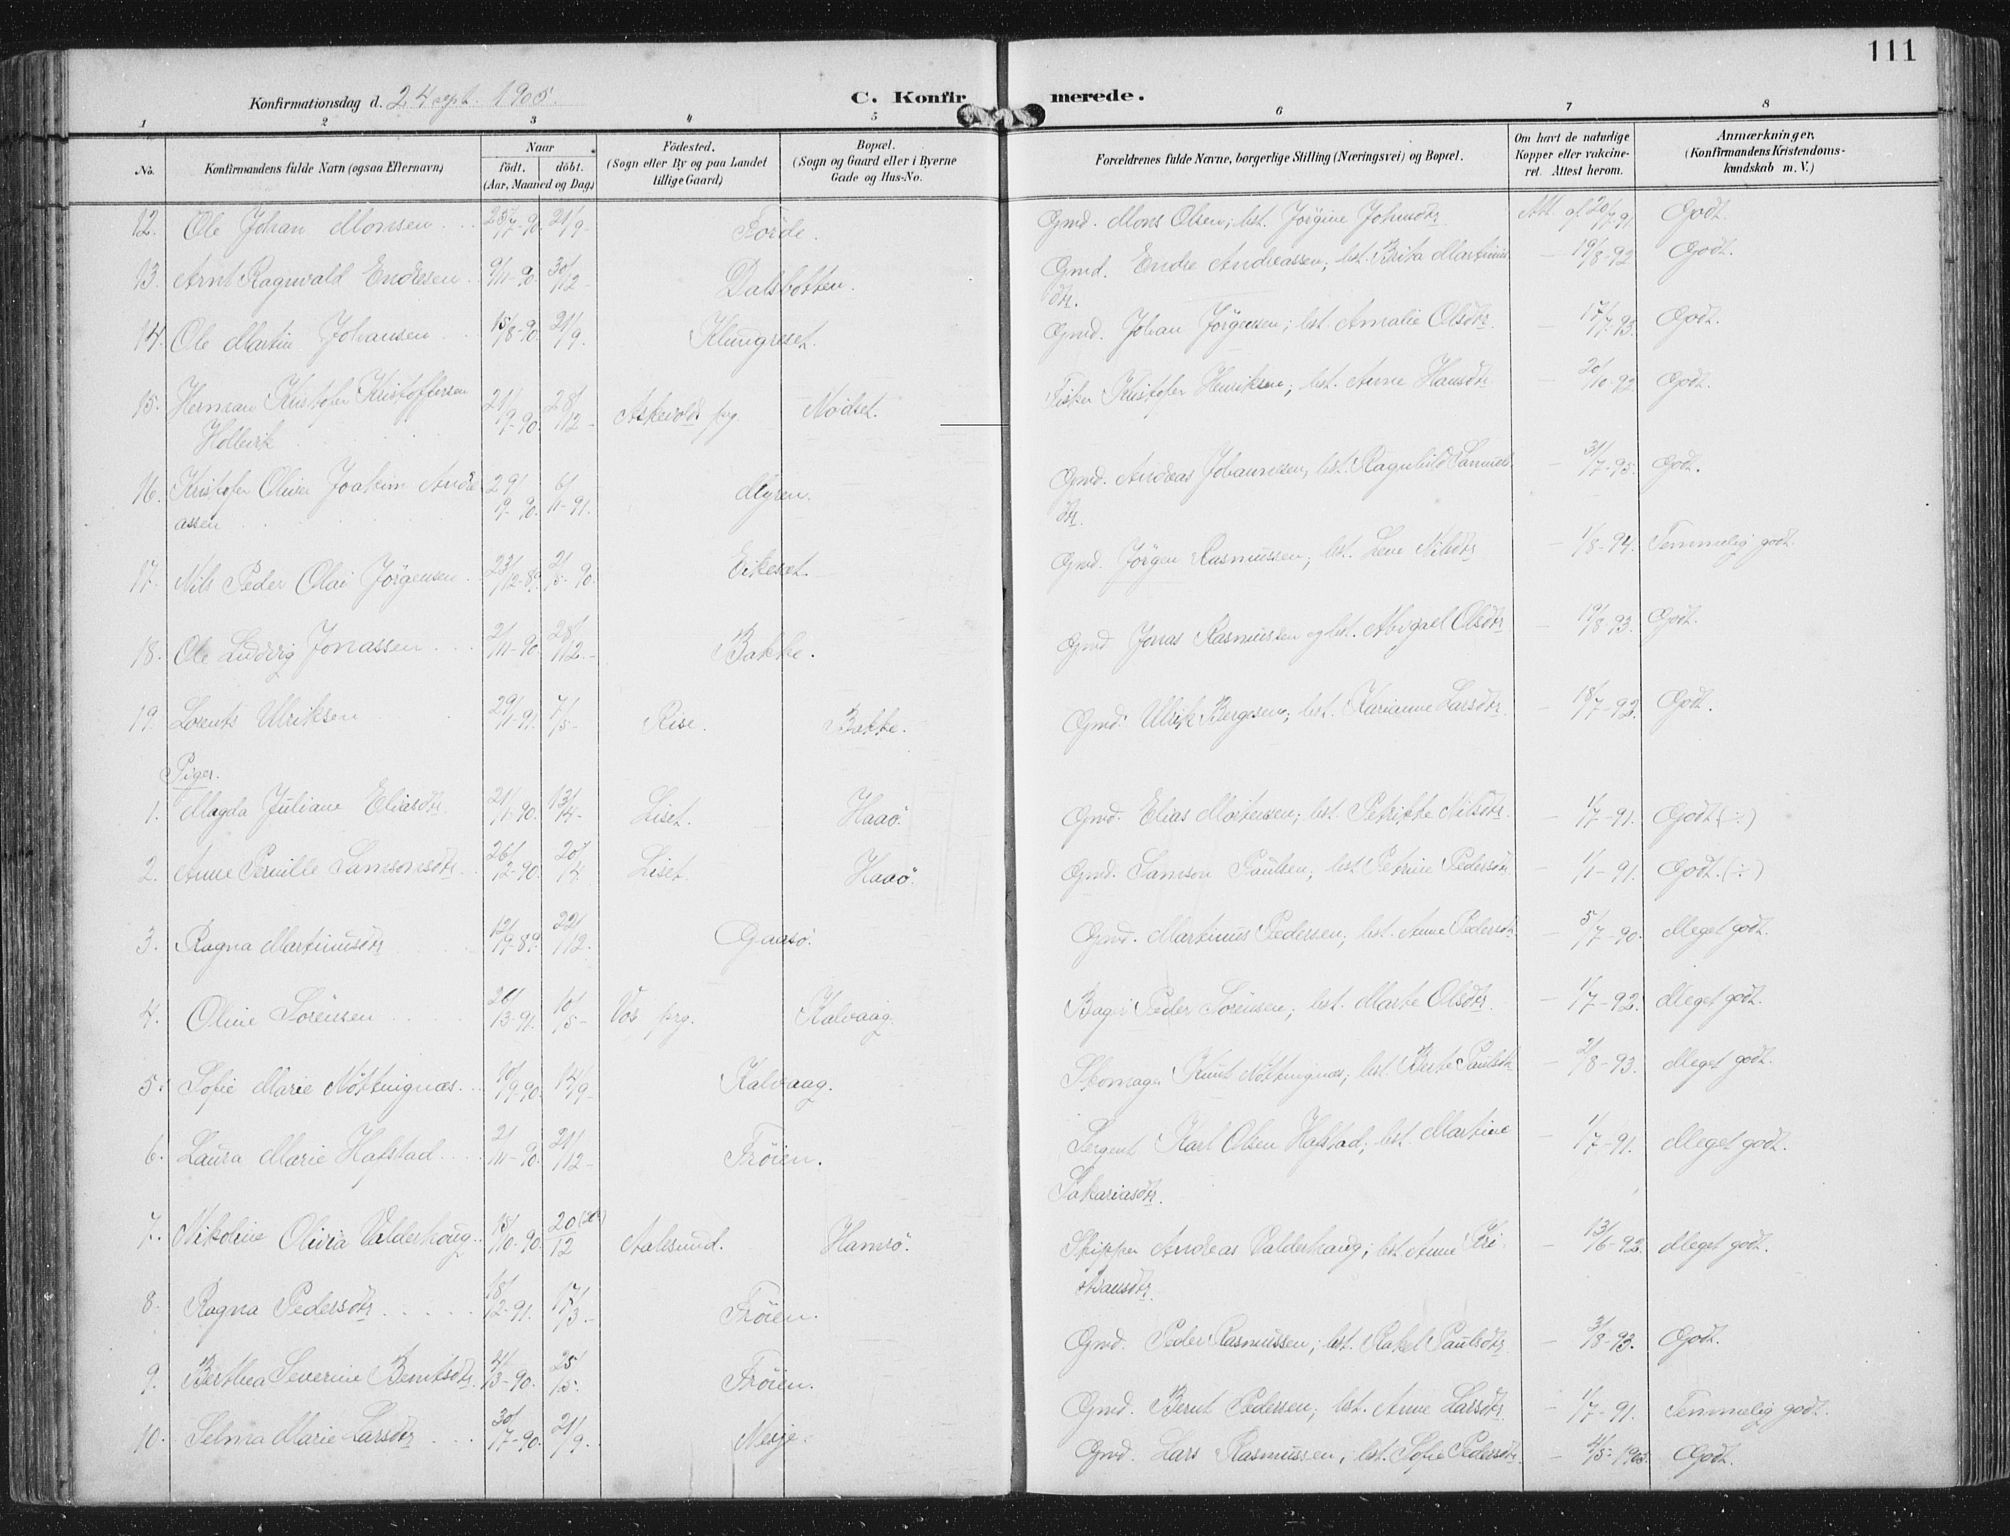 111
Konfirmationsdag d. 24 sept. 1905.
C. Konfir merede.
1 2 3 4 5 6 7 8
No. Konfirmandens fulde Navn (ogsaa Efternavn)
Naar
født. døbt.
(Aar, Maaned og Dag)
Fødested.
(Sogn eller By og paa Landet
tillige Gaard)
Bopæl.
(Sogn og Gaard eller i Byerne
Gade og Hus-No.
Forældrenes fulde Navne, borgerlige Stilling (Næringsvei) og Bopæl.
Om havt de naturlige
Kopper eller vakcine-
ret. Attest herom.
Anmærkninger.
(Konfirmandens Kristendoms-
kundskab m. V.)
12. Ole Johan Monsen 25/7-90 21/9- Førde. Gmd. Mons Olsen; hst. Jørgine Johnsdtr Att. af 20/7 91 Godt.
13. Arnt Ragnvald Endresen 9/11-90. 30/12- Dalsbotten. Gmd. Endre Andreassen; hst. Brita Martinus- 19/8-92 Godt.
dtr.
14. Ole Martin Johansen 15/8-90. 21/9. Klungreset. Gmd. Johan Jørgensen; hst. Amalie Olsdtr. 17/7-93 Godt.
15. Herman Kristofer Kristoffersen 21/9-90. 28/12- Askevold prg. Nødset. Fisker Kristofer Henriksen; hst. Anne Hansdtr 20/10-92 Godt.
Hellevik
16. Kristofer Oliver Joakim Andre 29/9-90. 6/11-91. Myren. Gmd. Andreas Johannesen; hst. Ragnhild Samuels- 31/7-95. Godt.
assen dtr.
17. Nils Peder Olai Jørgensen 23/12-89. 2/5-90. Eikeset. Gmd. Jørgen Rasmussen; hst. Lene Nilsdtr 1/8-94. Temmelig godt.
18. Ole Ludvig Jonassen 2/11-90 28/12- Bakke. Gmd Jonas Rasmussen og hst. Abigael Olsdtr 19/8-93. Godt.
19. Lorents Ulriksen 29/1-91. 7/5- Rise. Bakke. Gmd. Ulrik Børgesen; hst. Karianne Larsdtr. 18/7-92. Godt.
Piger.
1. Magda Juliane Eliasdtr 21/1-90. 13/4- Liset. Haaø. Gmd. Elias Mortensen; hst. Petrikke Nilsdtr. 1/7-91. Godt (÷)
2. Anne Pernille Samsonsdtr. 26/12-90. 20/4. Liset. Haaø. Gmd. Samson Paulsen; hst. Petrine Pedersdtr 1/1-91. Godt. (÷)
3. Ragna Martinusdtr 12/9-89. 22/12. Gaasø. Gmd. Martinus Pedersen; hst. Anne Pedersdtr 5/7-90. Meget godt.
4. Oline Sørensen 26/3-91. 10/5- Vos prg. Kalvaag. Bager Peder Sørensen; hst. Marte Olsdtr. 1/7-92. Meget godt.
5. Sofie Marie Nøttingnæs 10/9-90. 14/9- Kalvaag. Skomager Knut Nøttingnæs; hst. Berte Paulsdtr 2/8-93. Meget godt.
6. Laura Marie Hafstad 2/11-90. 21/12- Frøien. Sergent Karl Olsen Hafstad; hst. Martine 1/7-91. Meget godt.
Sakariasdtr.
7. Nikoline Olivia Valderhaug 15/10-90. 20/12 Aalesund. Hamsø. Skipper Andreas Valderhaug; hst. Anne Kri- 13/6-92. Meget godt.
stiansdtr.
8. Ragna Pedersdtr 18/12-91. 17/3- Frøien. Gmd. Peder Rasmussen; hst. Rakel Paulsdtr 3/8-93. Godt.
9. Berthea Severine Berntsdtr. 4/3-90. 25/5. Frøien. Gmd. Bernt Pedersen; hst. Anne Larsdtr 1/7-91. Temmelig godt.
10. Selma Marie Larsdtr 30/7-90. 21/9. Nesje. Gmd. Lars Rasmussen; hst. Sofie Pedersdtr 4/5-1905. Godt.